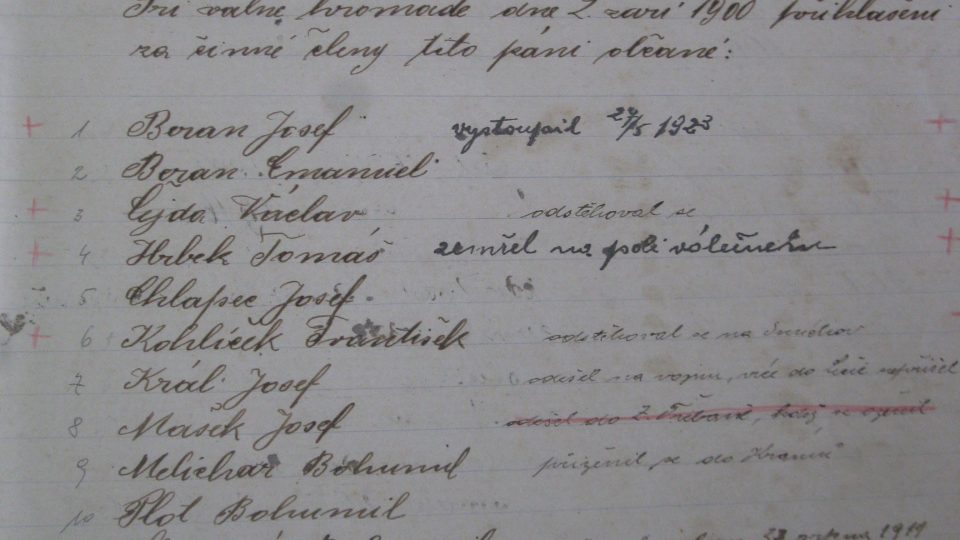 Při valné hromadě dne 2. září 1900 přihlášeni
za činné členy tito páni občané:
1 Beran Josef vystoupil 24/5 1923
2 Beran Emanuel
3 Cejda Václav odstěhoval se
4 Hrbek Tomáš zemřel na poli válečném
5 Chlapec Josef
6 Kohlíček František odstěhoval se na
7 Král Josef odešel na vojnu, více do
8 Mašek Josef odešel do když se
9 Melichar Bohumil přiženil se do
10 Plot Bohumil
1911